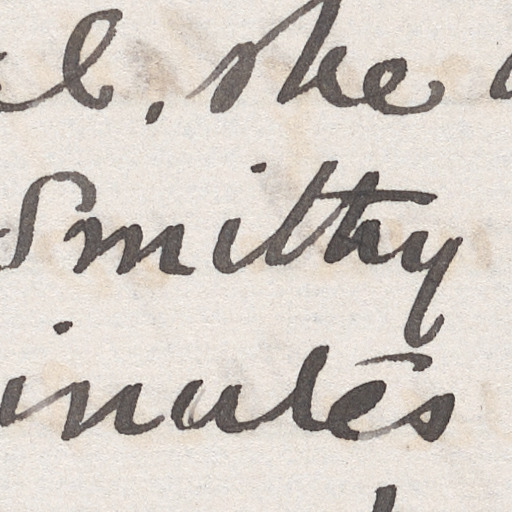 el, she
Smithy
inutes